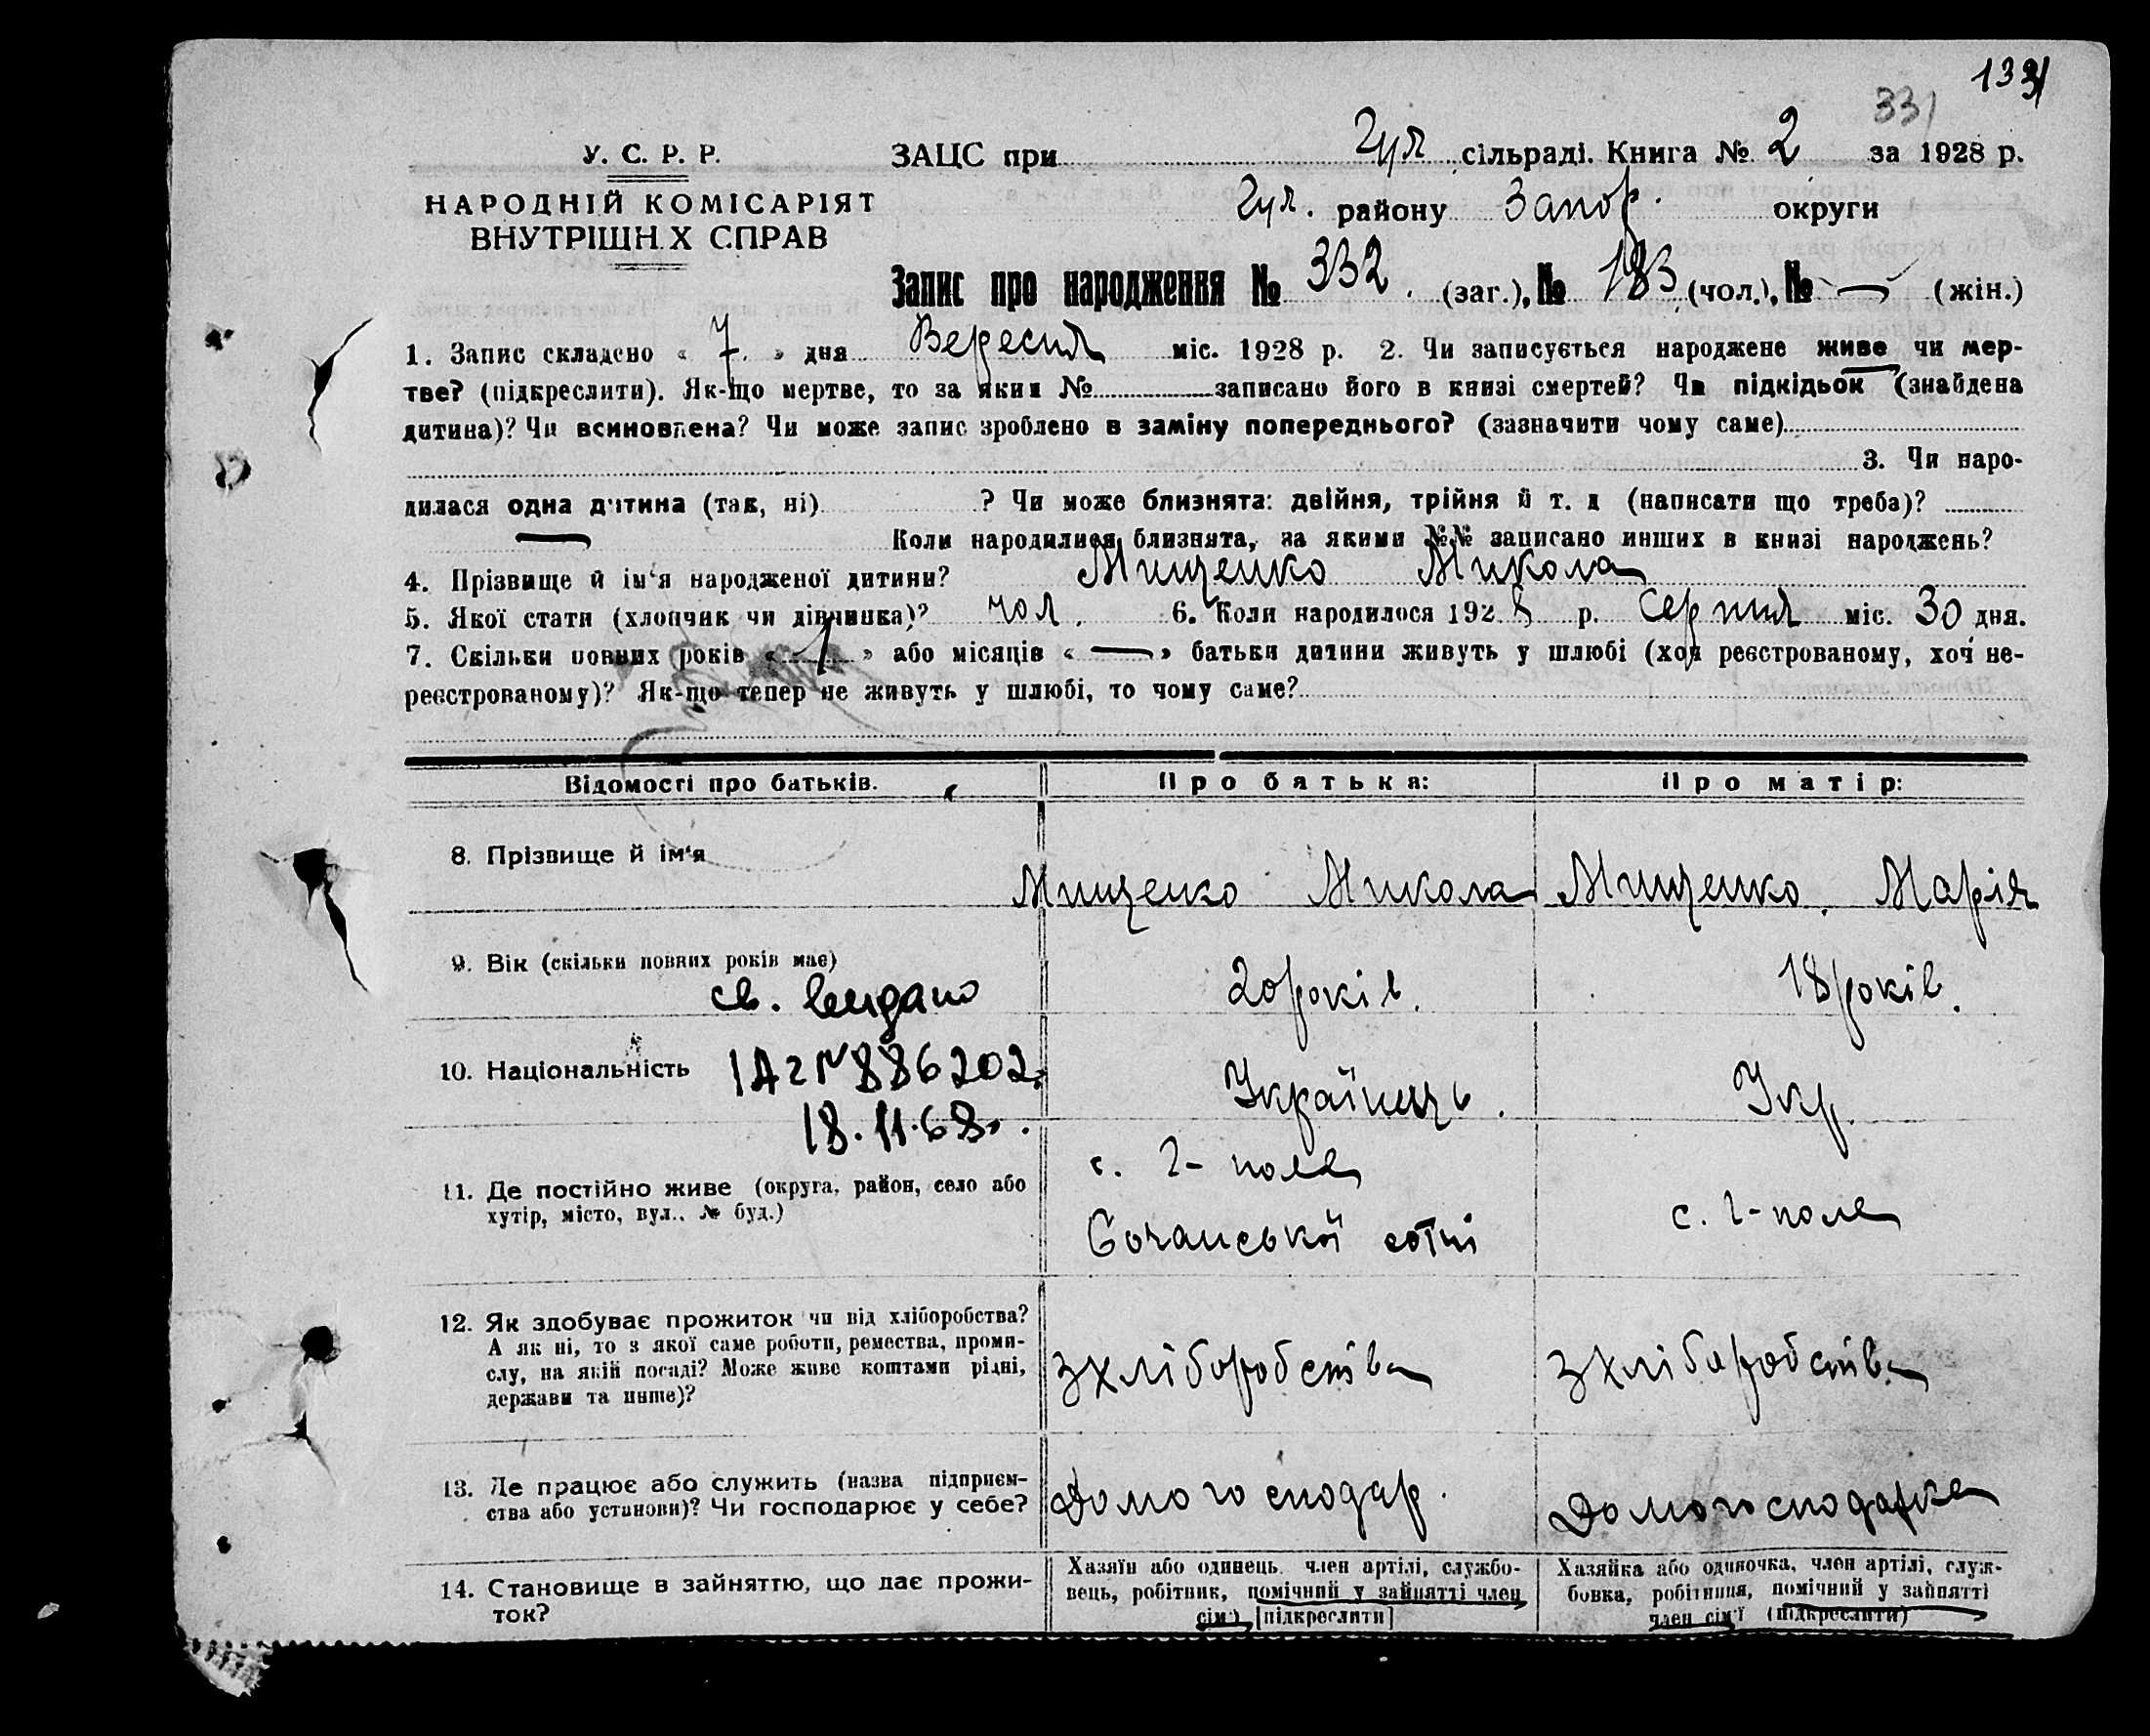 133
331
У. С. Р. Р.
ЗАЦС при Гул сільраді. Книга № 2 за 1928 р.
НАРОДНІЙ КОМІСАРІЯТ
ВНУТРІШН.Х СПРАВ
Гул. району Запор. округи
Запис про народження № 332. (заг.), № 183 (чол.), № — (жін.)
1. Запис складено « 7. » дня Вересня міс. 1928 р. 2. Чи записується народжене живе чи мер-
тве? (підкреслити). Як-що мертве, то за яким № записано його в книзі смертей? Чи підкідьок (знайдена
дитина)? Чи всиновлена? Чи може запис зроблено в заміну попереднього? (зазначити чому саме)
3. Чи наро-
дилася одна дитина (так, ні) ? Чи може близнята: двійня, трійня й т. д (написати що треба)?
Коли народилися близнята, за якими №№ записано инших в книзі народжень?
4. Прізвище й ім'я народженої дитини? Мищенко Микола
5. Якої стати (хлопчик чи дівчинка)? чол. 6. Коли народилося 1928 р. серпня міс. 30 дня.
7. Скільки повних років « 1 » або місяців « — » батьки дитини живуть у шлюбі (хоч реєстрованому, хоч не-
реєстрованому)? Як-що тепер не живуть у шлюбі, то чому саме?
Відомості про батьків. Про батька: Про матір:
8. Прізвище й ім'я Мищенко Микола Мищенко Марія
9. Вік (скільки повних років має) 20 років. 18 років.
св. видано
10. Національність Українець. Укр.
886202
18.11.68г.
11. Де постійно живе (округа, район, село або
хутір, місто, вул., № буд.)
с. Г-поле
сотні
с. Г-поле
12. Як здобуває прожиток чи від хліборобства?
А як ні, то з якої саме роботи, ремества, проми-
слу, на якій посаді? Може живе коштами рідні,
держави та инше)?
З хліборобства З хліборобства
13. Де працює або служить (назва підприєм-
ства або установи)? Чи господарює у себе?
Домогосподар. Домогосподарка
14. Становище в зайняттю, що дає прожи-
ток?
Хазяїн або одинець, член артілі, службо-
вець, робітник, помічний у зайнятті член
сім'ї [підкреслити]
Хазяйка або одиночка, член артілі, служ-
бовка, робітниця, помічний у зайнятті
член сім'ї (підкреслити)